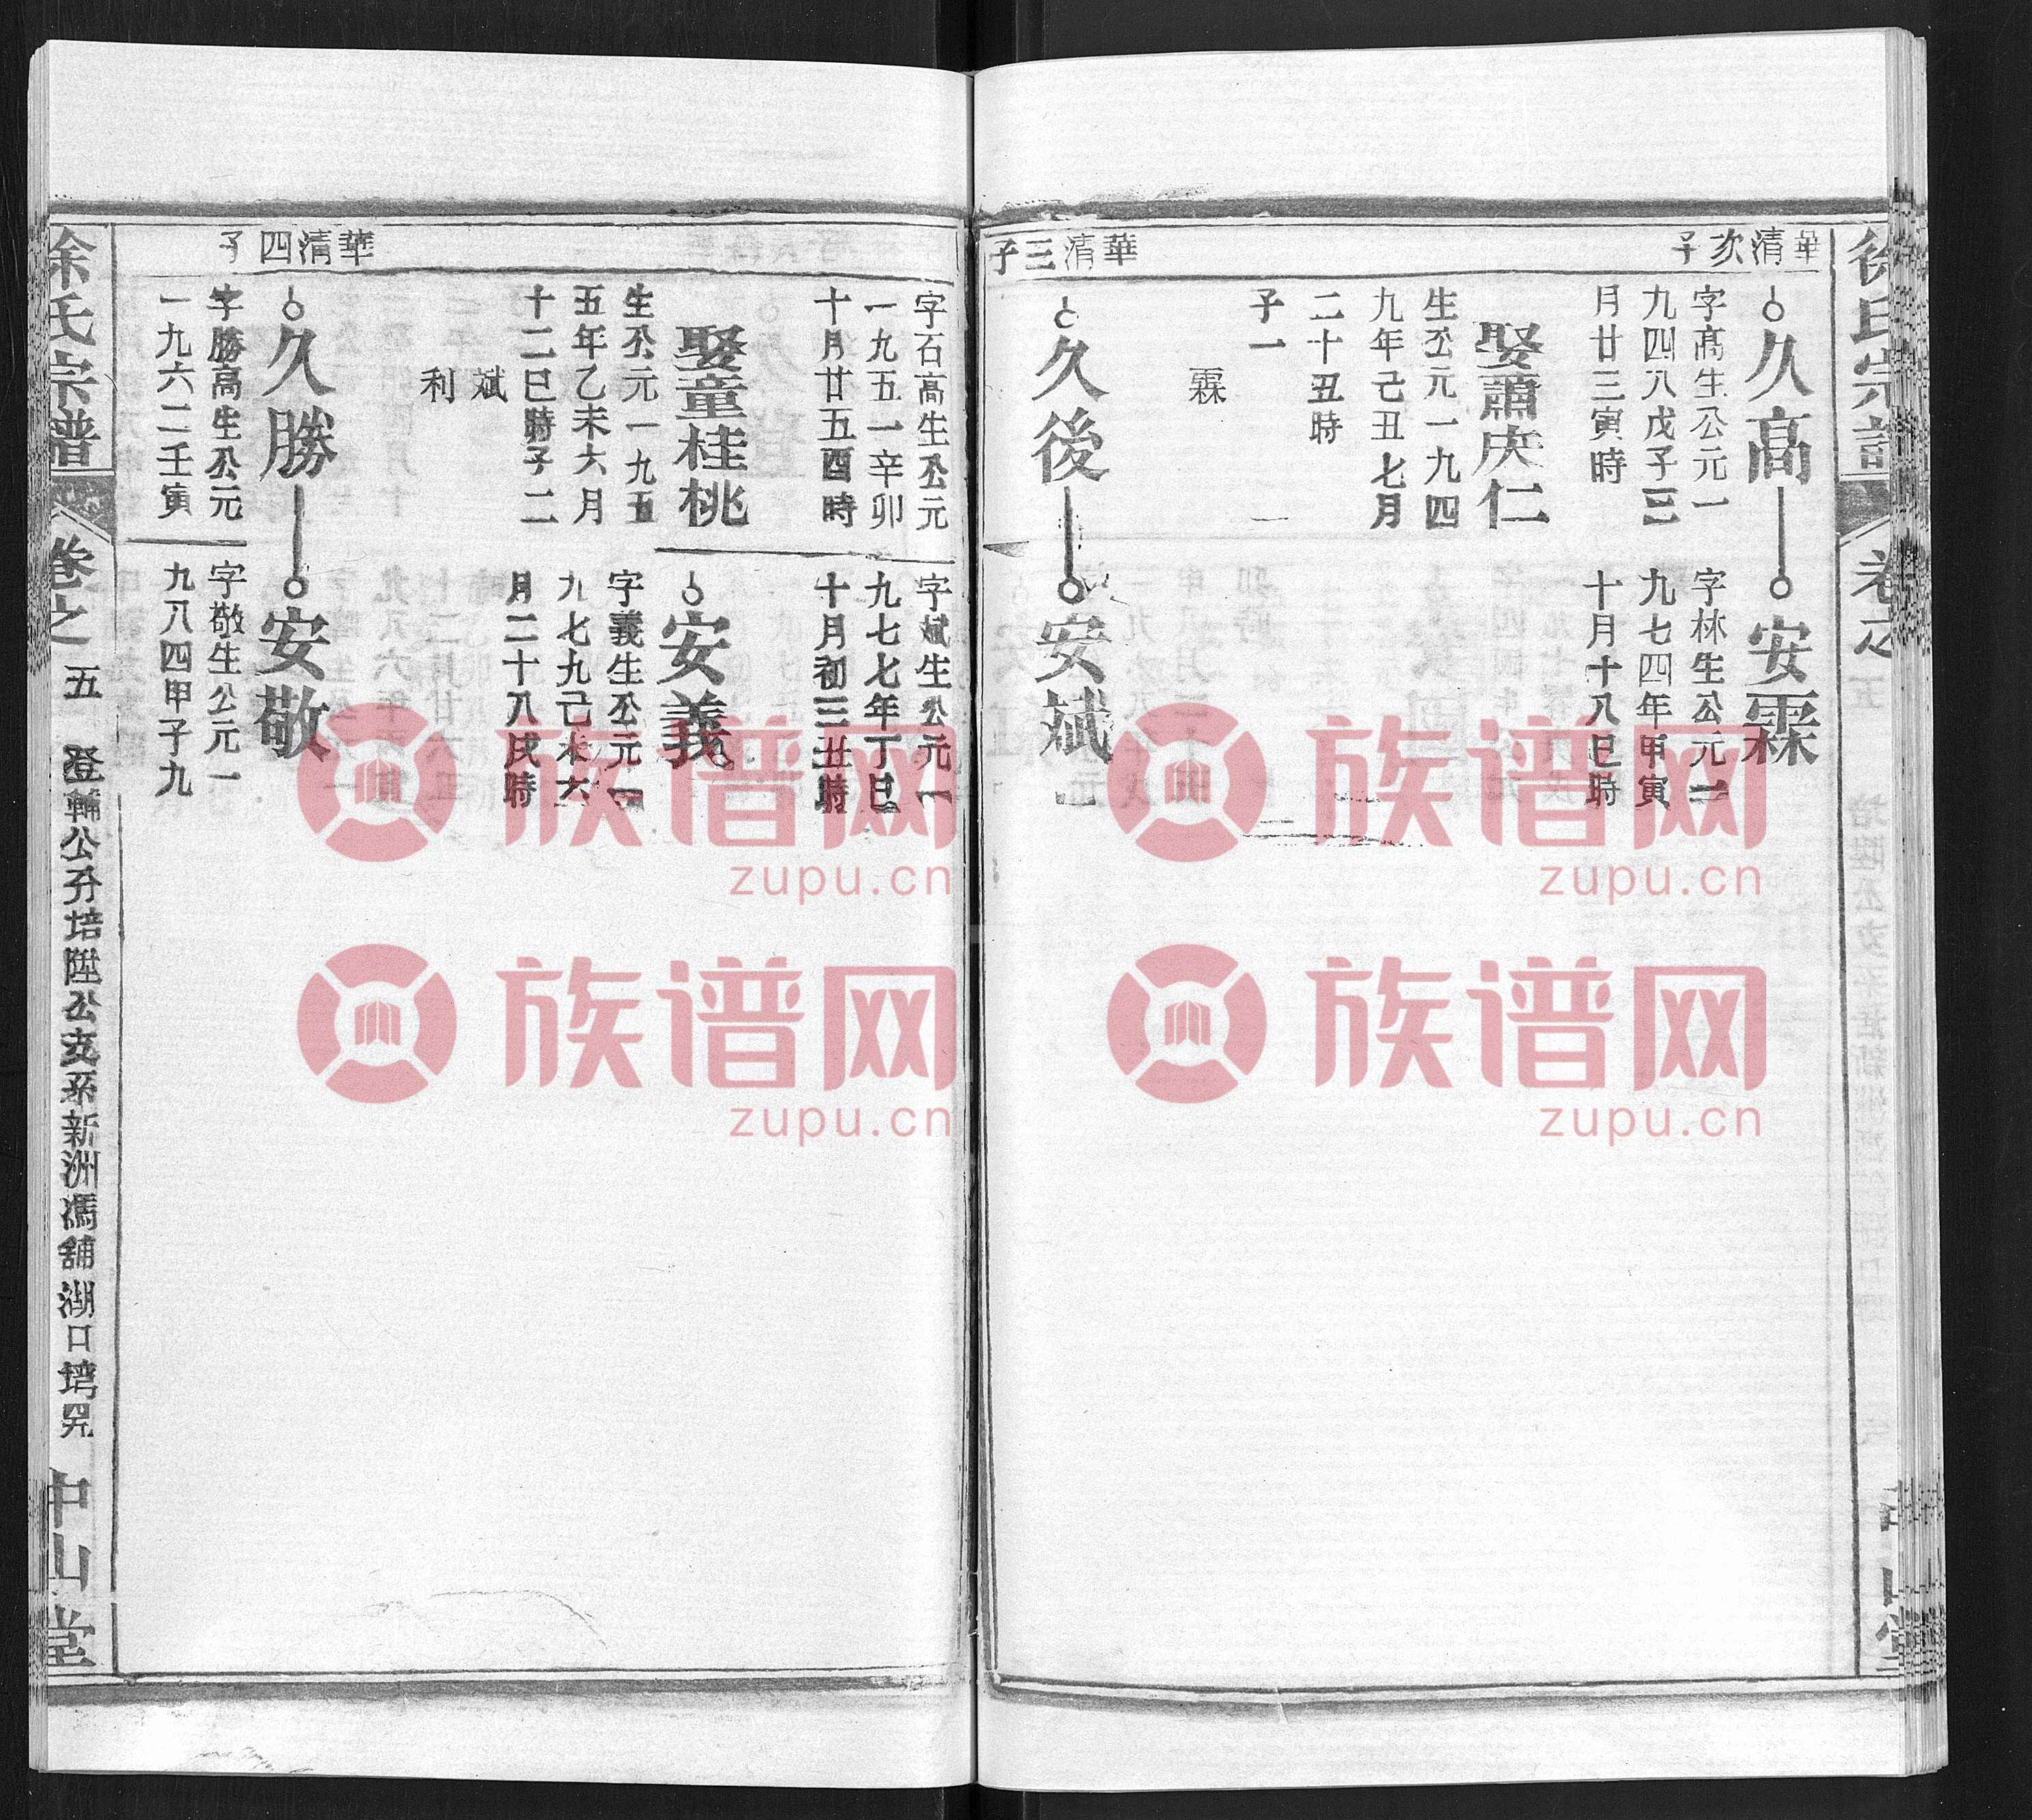 徐氏宗譜
卷之
五
華清次子
久高
安霖
字高生公元一
九四八戊子三
月廿三寅時
字林生公元一
九七四年甲寅
十月十八巳時
娶蕭庆仁
生公元一九四
九年己丑七月
二十丑時
子一
霖
華清三子
久後
安斌
字石高生公元
一九五一辛卯
十月廿五酉時
字斌生公元一
九七七年丁巳
十月初三丑時
娶童桂桃
生公元一九五
五年乙未六月
十二巳時子二
斌
利
安義
字義生公元一
九七九己未六
月二十八戌時
華清四子
久勝
安敬
字勝高生公元
一九六二壬寅
字敬生公元一
九八四甲子九
徐氏宗譜
卷之
五
登輔公分培陞公支系新洲馮舖湖口塆
中山堂
族谱网
zupu.cn
族谱网
zupu.cn
族谱网
zupu.cn
族谱网
zupu.cn